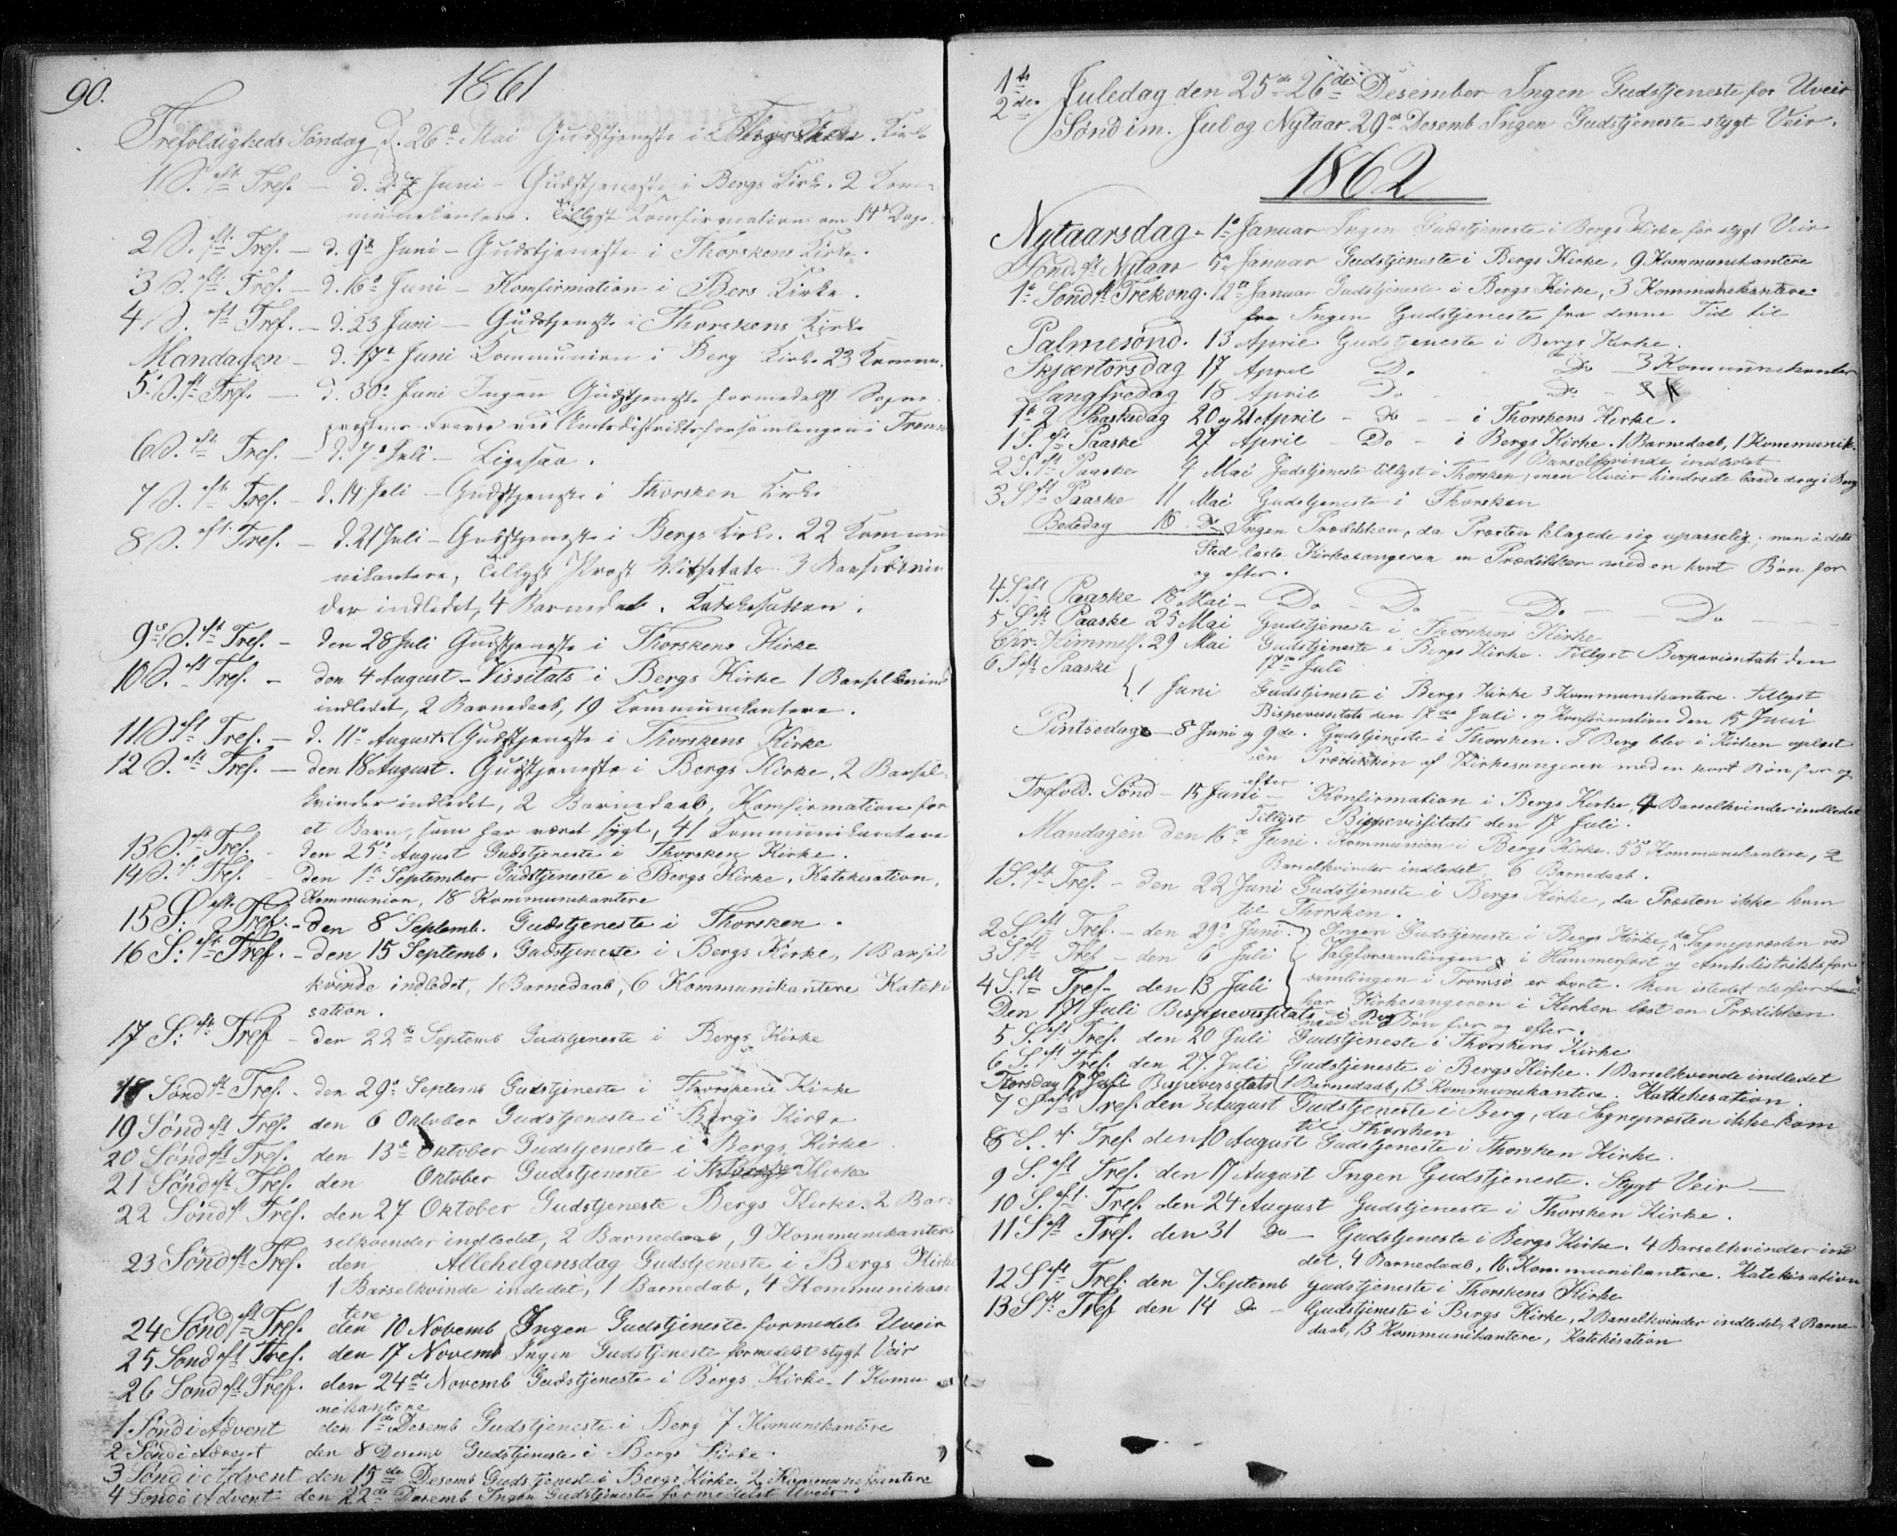 90.
1861
Trefoldigheds Søndag, d. 26de Mai Gudstjeneste i Thorskens Kirke
1 S. eft Tref. — d. 2 Juni – Gudstjeneste i Bergs Kirke. 2 Kom-
munikantere. Tillyst Komfirmation om 14 Dage.
2 S. eft. Tref. — d. 9de Juni – Gudstjeneste i Thorskens Kirke.
3 S. eft. Tref. — d. 16de Juni – Komfirmation i Bers Kirke.
4 S. eft Tref. — d. 23 Juni — Gudstjeneste i Thorskens Kirke
Mandagen — d. 17de Juni Kommunion i Berg Kirke 23 Komm.
5 S. eft Tref. — d. 30te Juni Ingen Gudstjeneste formedelst Sogne
prestens Fravær ved Amtsdistriktsforsamlingen i Tromsø
6 S. eft Tref. — d. 7de Juli – Ligesaa.
7 S. eft Tref. — d. 14 Juli – Gudstjeneste i Thorsken Kirke
8 S. eft. Tref. — d. 21 Juli – Gudstjeneste i Bergs Kirke. 22 Kommu
nikantere, Tillyst Prost Visitats. 3 Barselkvin
der indledet, 4 Barnedaab. Katekisation.
9 S. eft Tref. – den 28 Juli Gudstjeneste i Thorskens Kirke
10 S. eft Tref. – den 4 August – Vissitats i Bergs Kirke 1 Barselkvind
indledet, 2 Barnedaab, 19 Kommunikantere.
11 S. eft Tref. – d. 11te August. Gudstjeneste i Thorskens Kirke
12 S. eft Tref. — den 18 August. Gudstjeneste i Bergs Kirke, 2 Barsel-
kvinder indledet, 2 Barnedaab, Komfirmation for
et Barn, som har været sygt, 41 Kommunikantere
13 S. eft Tref. – den 25de August Gudstjeneste i Thorsken Kirke.
14 S. eft Tref. – den 1te September Gudstjeneste i Bergs Kirke, Katekisation,
Kommunion, 18 Kommunikantere
15 S. eft. Tref. – den 8 Septemb. Gudstjeneste i Thorsken.
16 S: eft Tref. – den 15 Septemb. Gudstjeneste i Bergs Kirke, 1 Barsel
kvinde indledet, 1 Barnedaab, 6 Kommunikantere Kateki
sation.
17 S: eft Tref – den 22de Septemb Gudstjeneste i Bergs Kirke
18 Sønd eft Tref. – den 29de Septemb Gudstjeneste i Thorskens Kirke
19 Sønd eft Tref. den 6 Oktober Gudstjeneste i Bergs Kirke
20 Sønd eft Tref. den 13de Oktober Gudstjeneste i Bergs Kirke
21 Sønd eft Tref. den Oktober Gudstjeneste i Thorsken Kirke
22 Sønd eft Tref. den 27 Oktober Gudstjeneste Bergs Kirke. 2 Bar-
selkvinder indledet, 2 Barnedaab, 9 Kommunikantere
23 Sønd eft Tref. den Allehelgensdag Gudstjeneste i Bergs Kirke
1 Barselkvinde indedet, 1 Barnedab, 4 Kommunikan
tere
24 Sønd eft Tref. den 10 Novemb Ingen Gudstjeneste formedels Uveir
25 Sønd eft Tref. den 17 Novemb Ingen Gudstjeneste formedelst stygt Veir
26 Sønd eft Tref. den 24de Novemb Gudstjeneste i Bergs Kirke. 1 Komu
nikantere
1 Sønd i Advent den 1ste Desemb Gudstjeneste i Berg 7 Komunikantere
2 Sønd i Advent den 8 Desemb Gudstjeneste i Bergs Kirke.
3 Sønd i Advent den 15de Desemb Gudstjeneste i Bergs Kirke. 2 Kommunikantere
4 Sønd i Advent den 22de Desemb Ingen Gudstjeneste formedelst Uveir.
1te 2den Juledag den 25de 26de Desember Ingen Gudstjeneste for Uveir
Sønd im. Jul og Nytaar 29de Desemb Ingen Gudstjeneste stygt Veir.
1862
Nytaarsdag – 1te Januar Ingen Gudstjeneste i Bergs Kirke for stygt Veir
Sønd eft Nytaar 5te Januar Gudstjeneste i Bergs Kirke, 9 Kommunikantere
1te Sønd eft Trekong. 12te Januar Gudstjeneste i Bergs Kirke, 3 Kommunikantere.
fra Ingen Gudstjeneste fra denne Tid til
Palmesønd. 13 April Gudstjeneste i Bergs Kirke.
Skjærtorsdag 17 April Do Do 3 Kommunikanter
Langfredag 18 April Do Do
1te 2 Paaskedag 20 og 21 April – do – i Thorskens Kirke.
1 S. eft Paaske 27 April – Do – i Bergs Kirke. 1 Barnedaab, 1 Kommunik.
1 Barselkvinde indledet
2 S. eft Paaske 4 Mai Gudstjeneste tillyst i Thorsken, men Uveir hindrede baade der og i Berg
3 S. eft Paaske 11 Mai Gudstjeneste i Thorsken
Bededag 16 Do Ingen Prædikken, da Præsten klagede sig upasselig; men i dets
Sted læste Kirkesangeren en Prædikken med en kort Bøn for
og efter.
4 S. eft Paaske 18 Mai – Do – Do Do — Do
5 S. eft Paaske 25 Mai Gudstjeneste i Thorskens Kirke
Chr. Himmelf. 29 Mai Gudstjeneste i Bergs Kirke. Tillyst Bispevisitats den
17de Juli
6 S. eft Paaske 1 Juni Gudstjeneste i Bergs Kirke 3 Kommunikantere. Tillyst
Bispevissitats den 17de Juli. og Konfirmation den 15 Juni
Pintsedag – 8 Juni og 9de. Gudstjeneste i Thorsken. I Berg blev i Kirken oplæst
en Prædikken af Kirkesangeren med en kort Bøn for og
efter.
Trefold. Sønd – 15 Juni – Konfirmation i Bergs Kirke, 4 Barselkvinder indledet
Tillyst Bispevissitats den 17 Juli.
Mandagen den 16de Juni. Kommunion i Bergs Kirke. 55 Kommunikantere, 2
Barselkvinder indledet 6 Barnedaab.
1 S. eft Tref. – den 22 Juni Gudstjeneste i Bergs Kirke, da Præsten ikke kom
til Thorsken.
2 S. eft Tref. – den 29de Juni Ingen Gudstjeneste i Bergs Kirke, da Sognepræsten ved
3 S. eft Tref – den 6 Juli Valgforsamlingen i Hammerfest og Amtsdistriktsfor
4 S. eft Tref – den 13 Juli samlingen i Tromsø er borte. Men istedet derfor
har Kirkesangeren i Kirken læst en Prædikken
Den 17 Juli Bisppevissitats i Berg
med en Bøn for og efter.
5 S. eft Tref. den 20 Juli Gudstjeneste i Thorskens Kirke
6 S. eft Tref. den 27. Juli Gudstjeneste i Bergs Kirke. 1 Barselkvinde indledet
Torsdag 17 Juli Bispevisitats 1 Barnedaab, 13 Kommunikantere. Katekesation.
7 S. eft Tref. den 3 August Gudstjeneste i Berg, da Sognepræsten ikke kom
til Thorsken
8 S. eft Tref. den 10 August Gudstjeneste i Thorsken Kirke.
9 S. eft Tref. den 17 August Ingen Gudstjeneste. Stygt Veir —
10 S. eft. Tref. den 24 August Gudstjeneste i Thorsken Kirke.
11 S eft Tref. den 31 do — Gudstjeneste i Bergs Kirke. 4 Barselkvinder ind
det. 4 Barnedaab, 16 Kommunikantere. Katekisation
12 S eft Tref. den 7 Septemb Gudstjeneste i Thorskens Kirke
13 S eft Tref den 14 do – Gudstjeneste i Bergs Kirke, 2 Barselkvinder indledet, 2 Barne
daab, 13 Kommunikantere, Katekisation